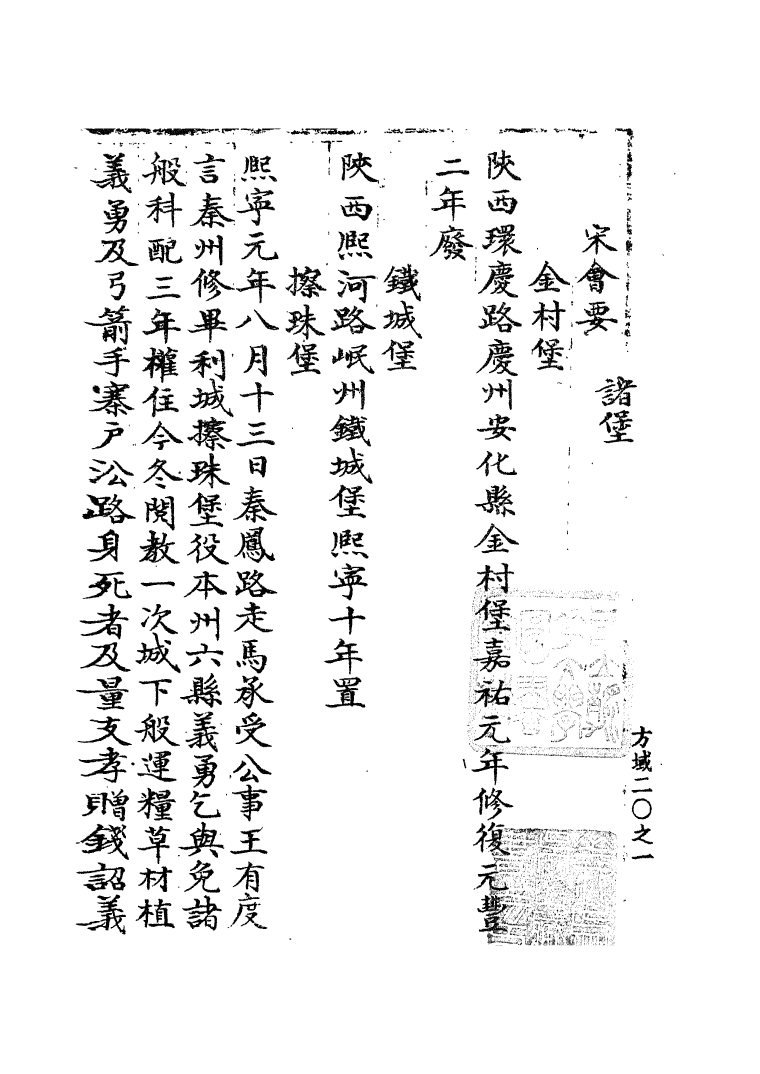 宋會要
諸堡
金村堡
陝西環慶路慶州安化縣金村堡嘉祐元年修復元豐
二年廢
鐵城堡
陝西熙河路岷州鐵城堡熙寧十年置
擦珠堡
熙寧元年八月十三日秦鳳路走馬承受公事王有度
言秦州修畢利城擦珠堡役本州六縣義勇乞與免諸
般科配三年權住今冬閱教一次城下般運糧草材植
義勇及弓箭手寨戶㳂路身死者及量支孝贈錢詔義
方域二〇之一